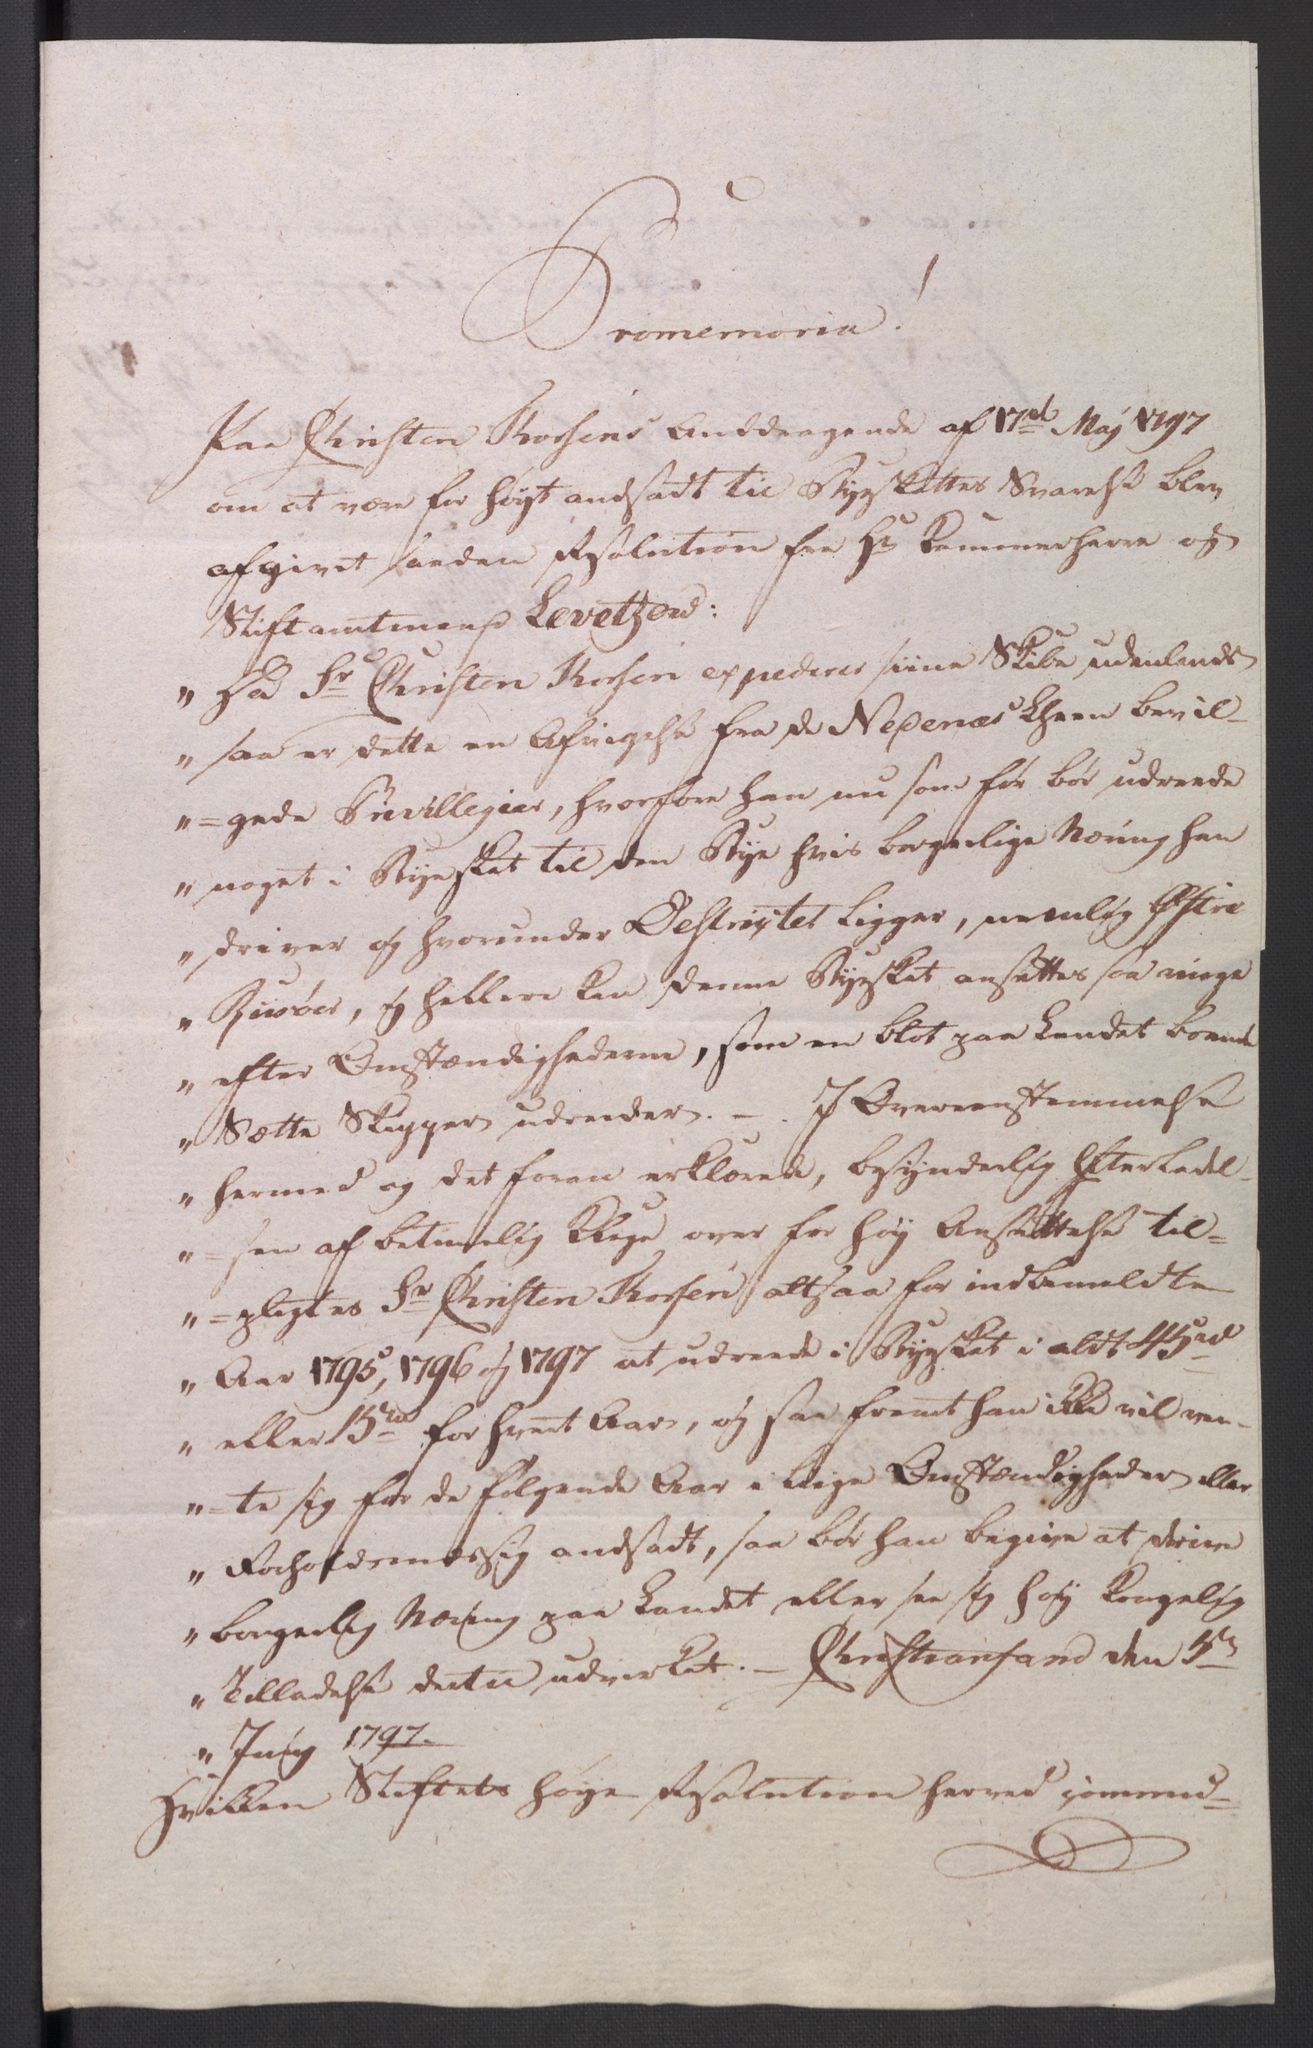 Promemoria!
Paa Christen Thorsens Anddragende af 17de Maj 1797
om at være for høyt andsadt til Byeskattes Svarelse blev
afgivet saadan Resolution fra Hr Kammerherre og
Stiftamtmand Levetzoud:
" Da Sr Christen Thorsen expederer siine Skibe udenlands
" saa er dette en Afvigelse fra de Nedenæs Lheen bevil-
" =gede Privillegier, hvorfore han nu som før bør udreede
" noget i Byeskat til den Bye hvis borgerlige Næring han
" driver og hvorunder Destrictet ligger, nemlig Østre
" Riisøer, og hellere kan denne Byeskat ansættes saa ringe
" efter Omstændighederne, som en blot paa Landet boende
" Sætte Skipper udreder. - . I Overeenstemmelse
" hermed og det foran erklærede, besynderlig Efterladel-
" =sen af betimelig Klage over for høy Ansættelse til=
" =pligtes Sr Christen Thorsen altsaa for indbemeldte
" Aar 1795, 1796 og 1797 at udreede i Byeskat i aldt 45rd
" eller 15rd for hvert Aar, og saa fremt han ikke vil ven-
" =te sig for de følgende Aar i liige Omstændigheder eller
" Forholdsmæssig andsadt, saa bør han begive at drive
" borgerlig Næring paa Landet eller see sig høy Kongelig
" Tilladelse dertil udvirket. - Christiansand den 5te
" Juny 1797.
Hvilken Stiftets høye Resolution herved commu=